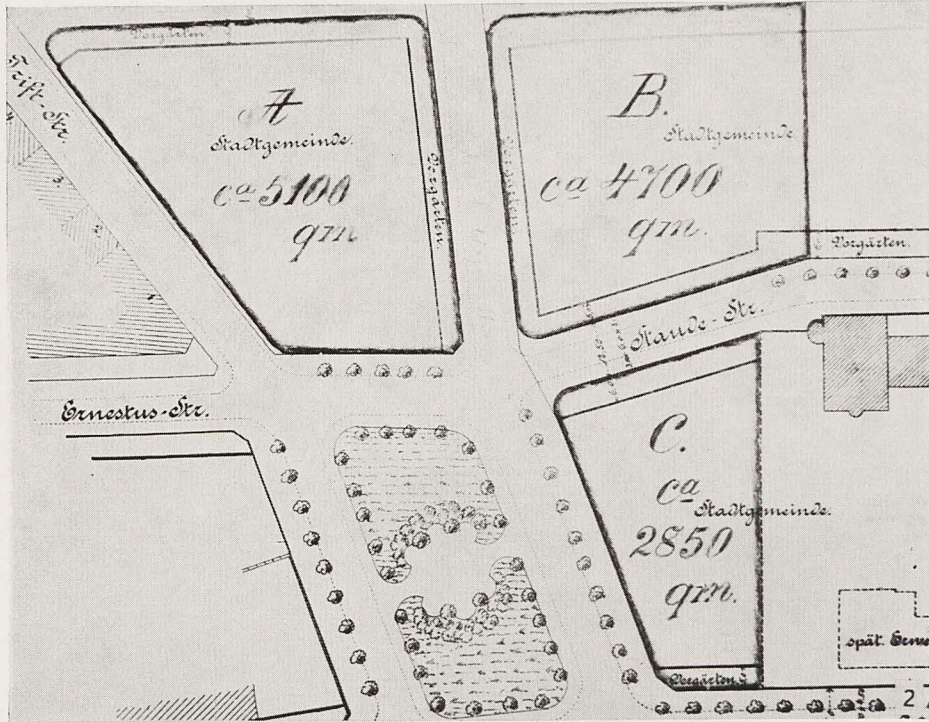 Vorgärten.
Trift-Str.
A
Stadtgemeinde.
ca 5100
qm
Vorgärten.
B.
Stadtgemeinde
ca 4700
qm.
Vorgärten
Vorgärten.
Staude-Str.
Ernestus-Str.
C.
ca
Stadtgemeinde.
2850
qm.
Vorgärten
spät.
2